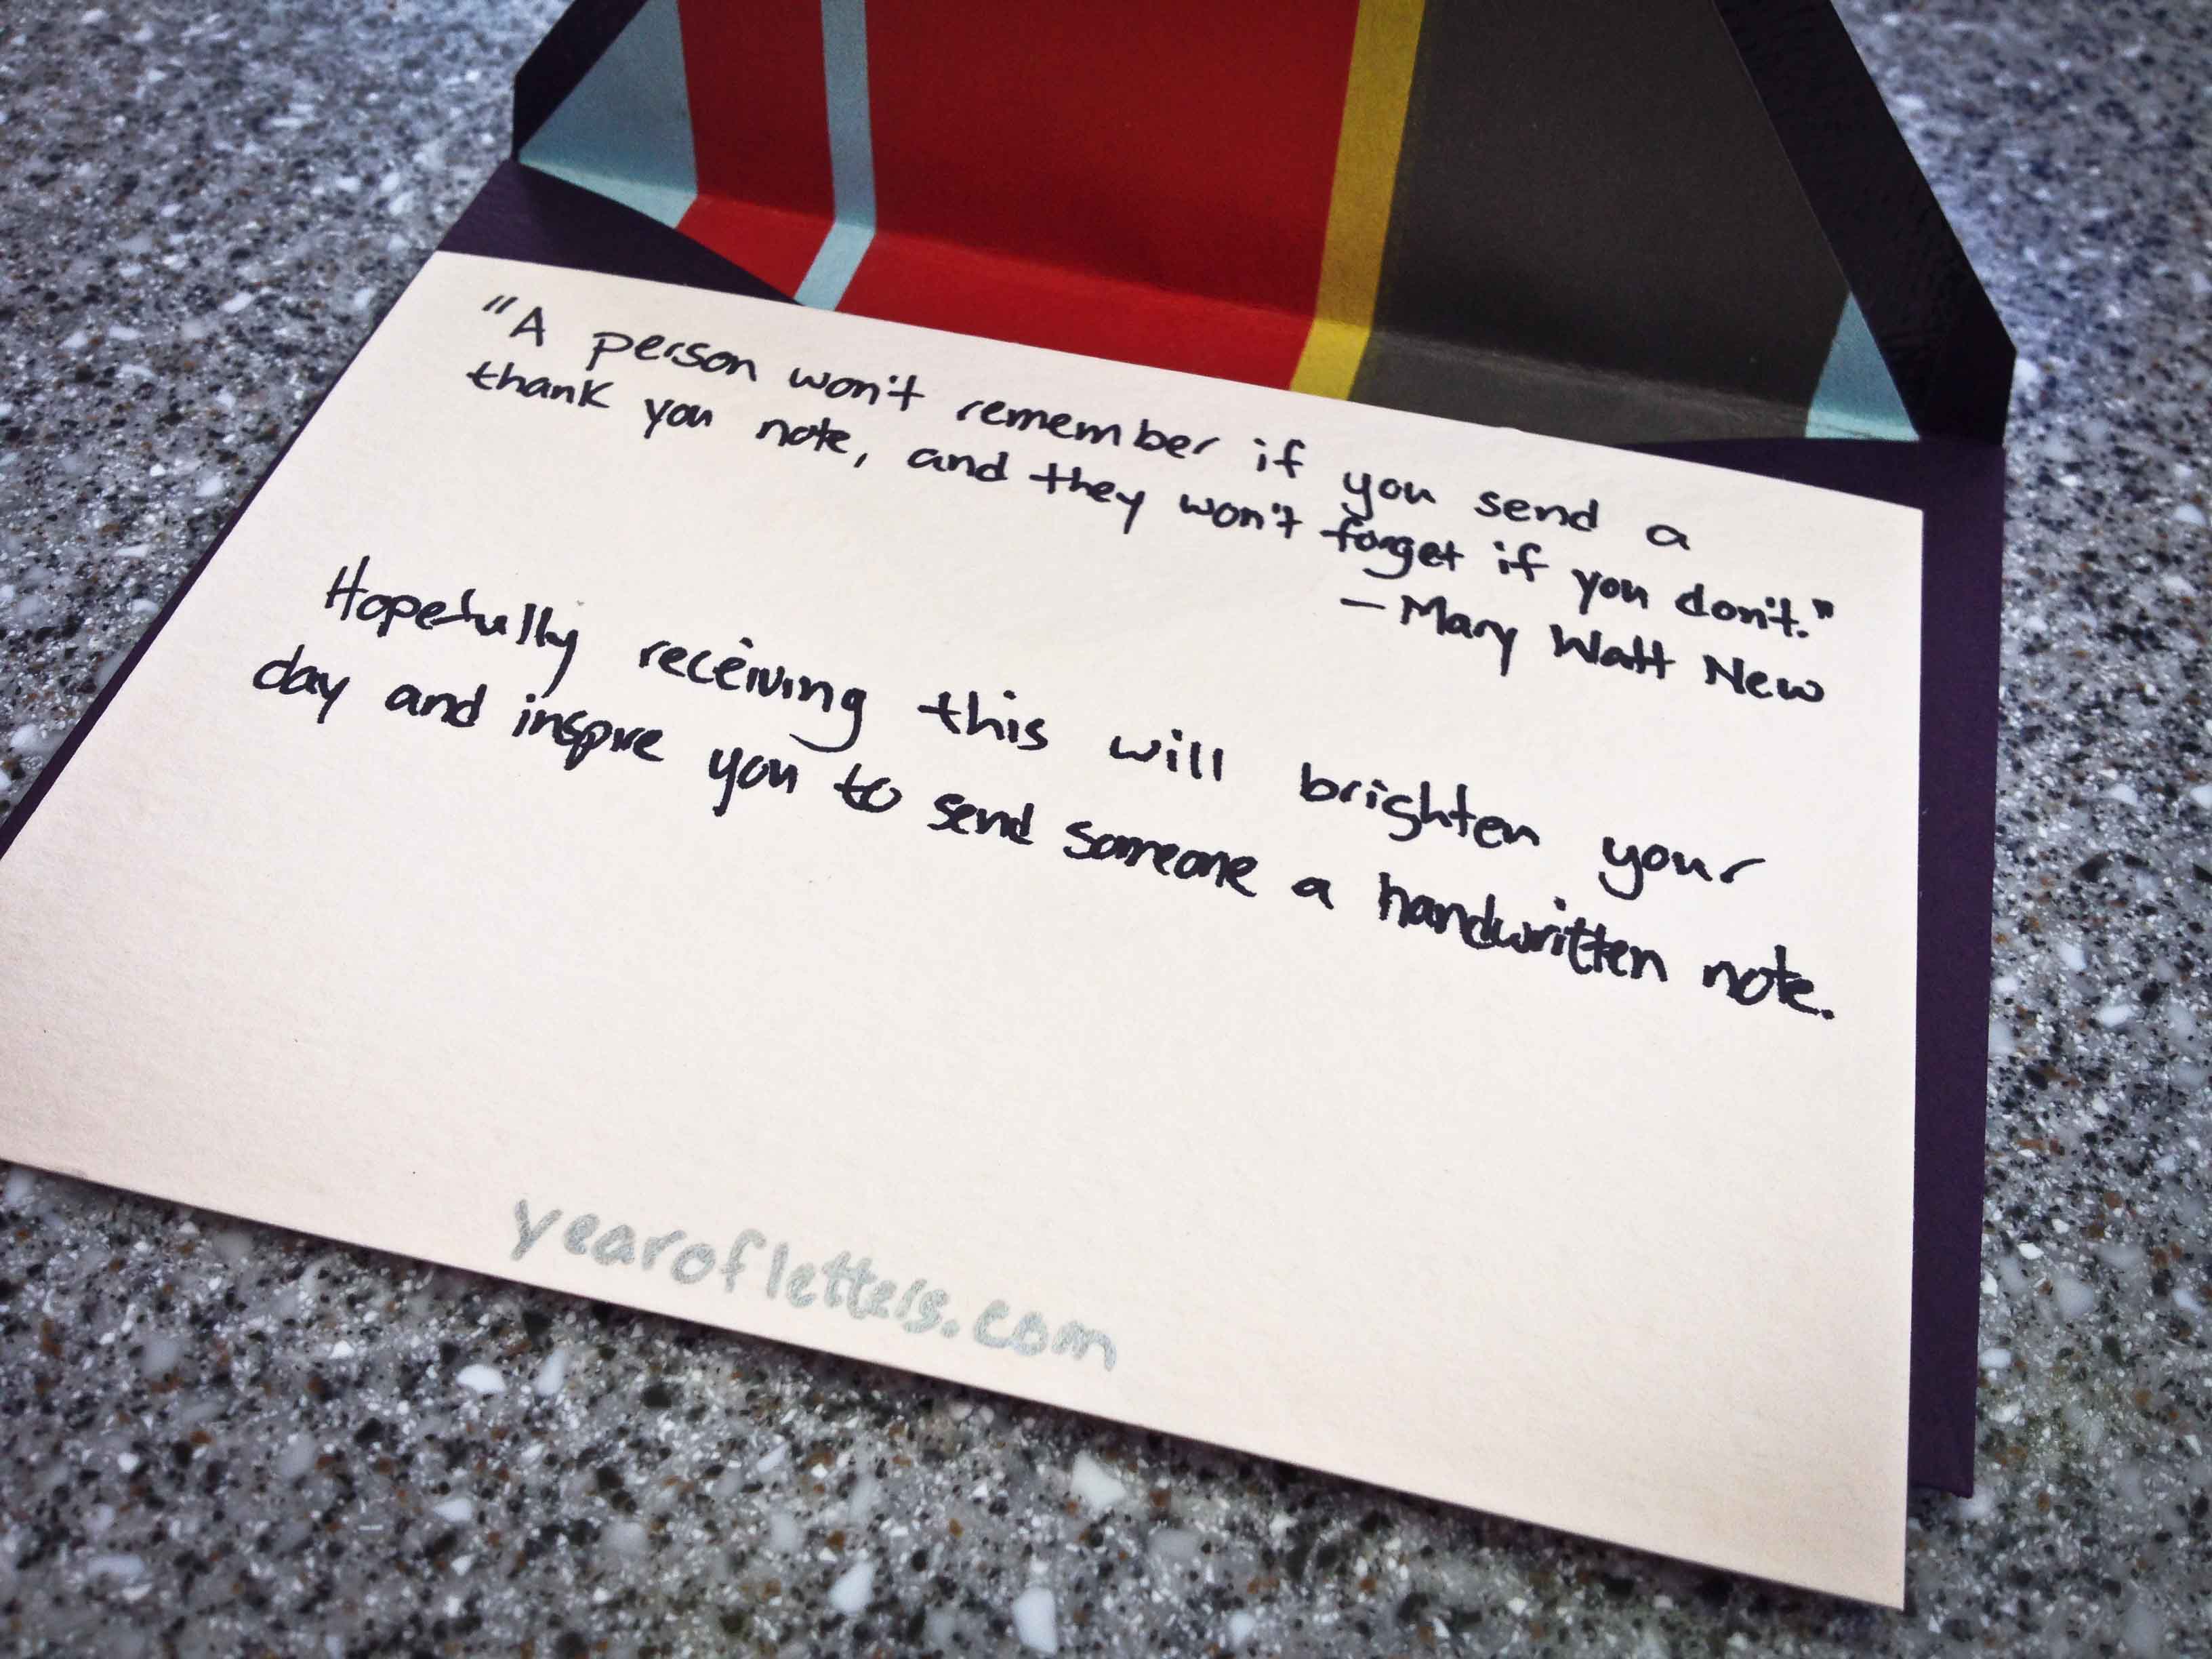 "A person won't remember if you send a
thank you note, and they won't forget if you don't."
— Mary Watt New
Hopefully receiving this will brighten your
day and inspire you to send someone a handwritten note.
yearofletters.com